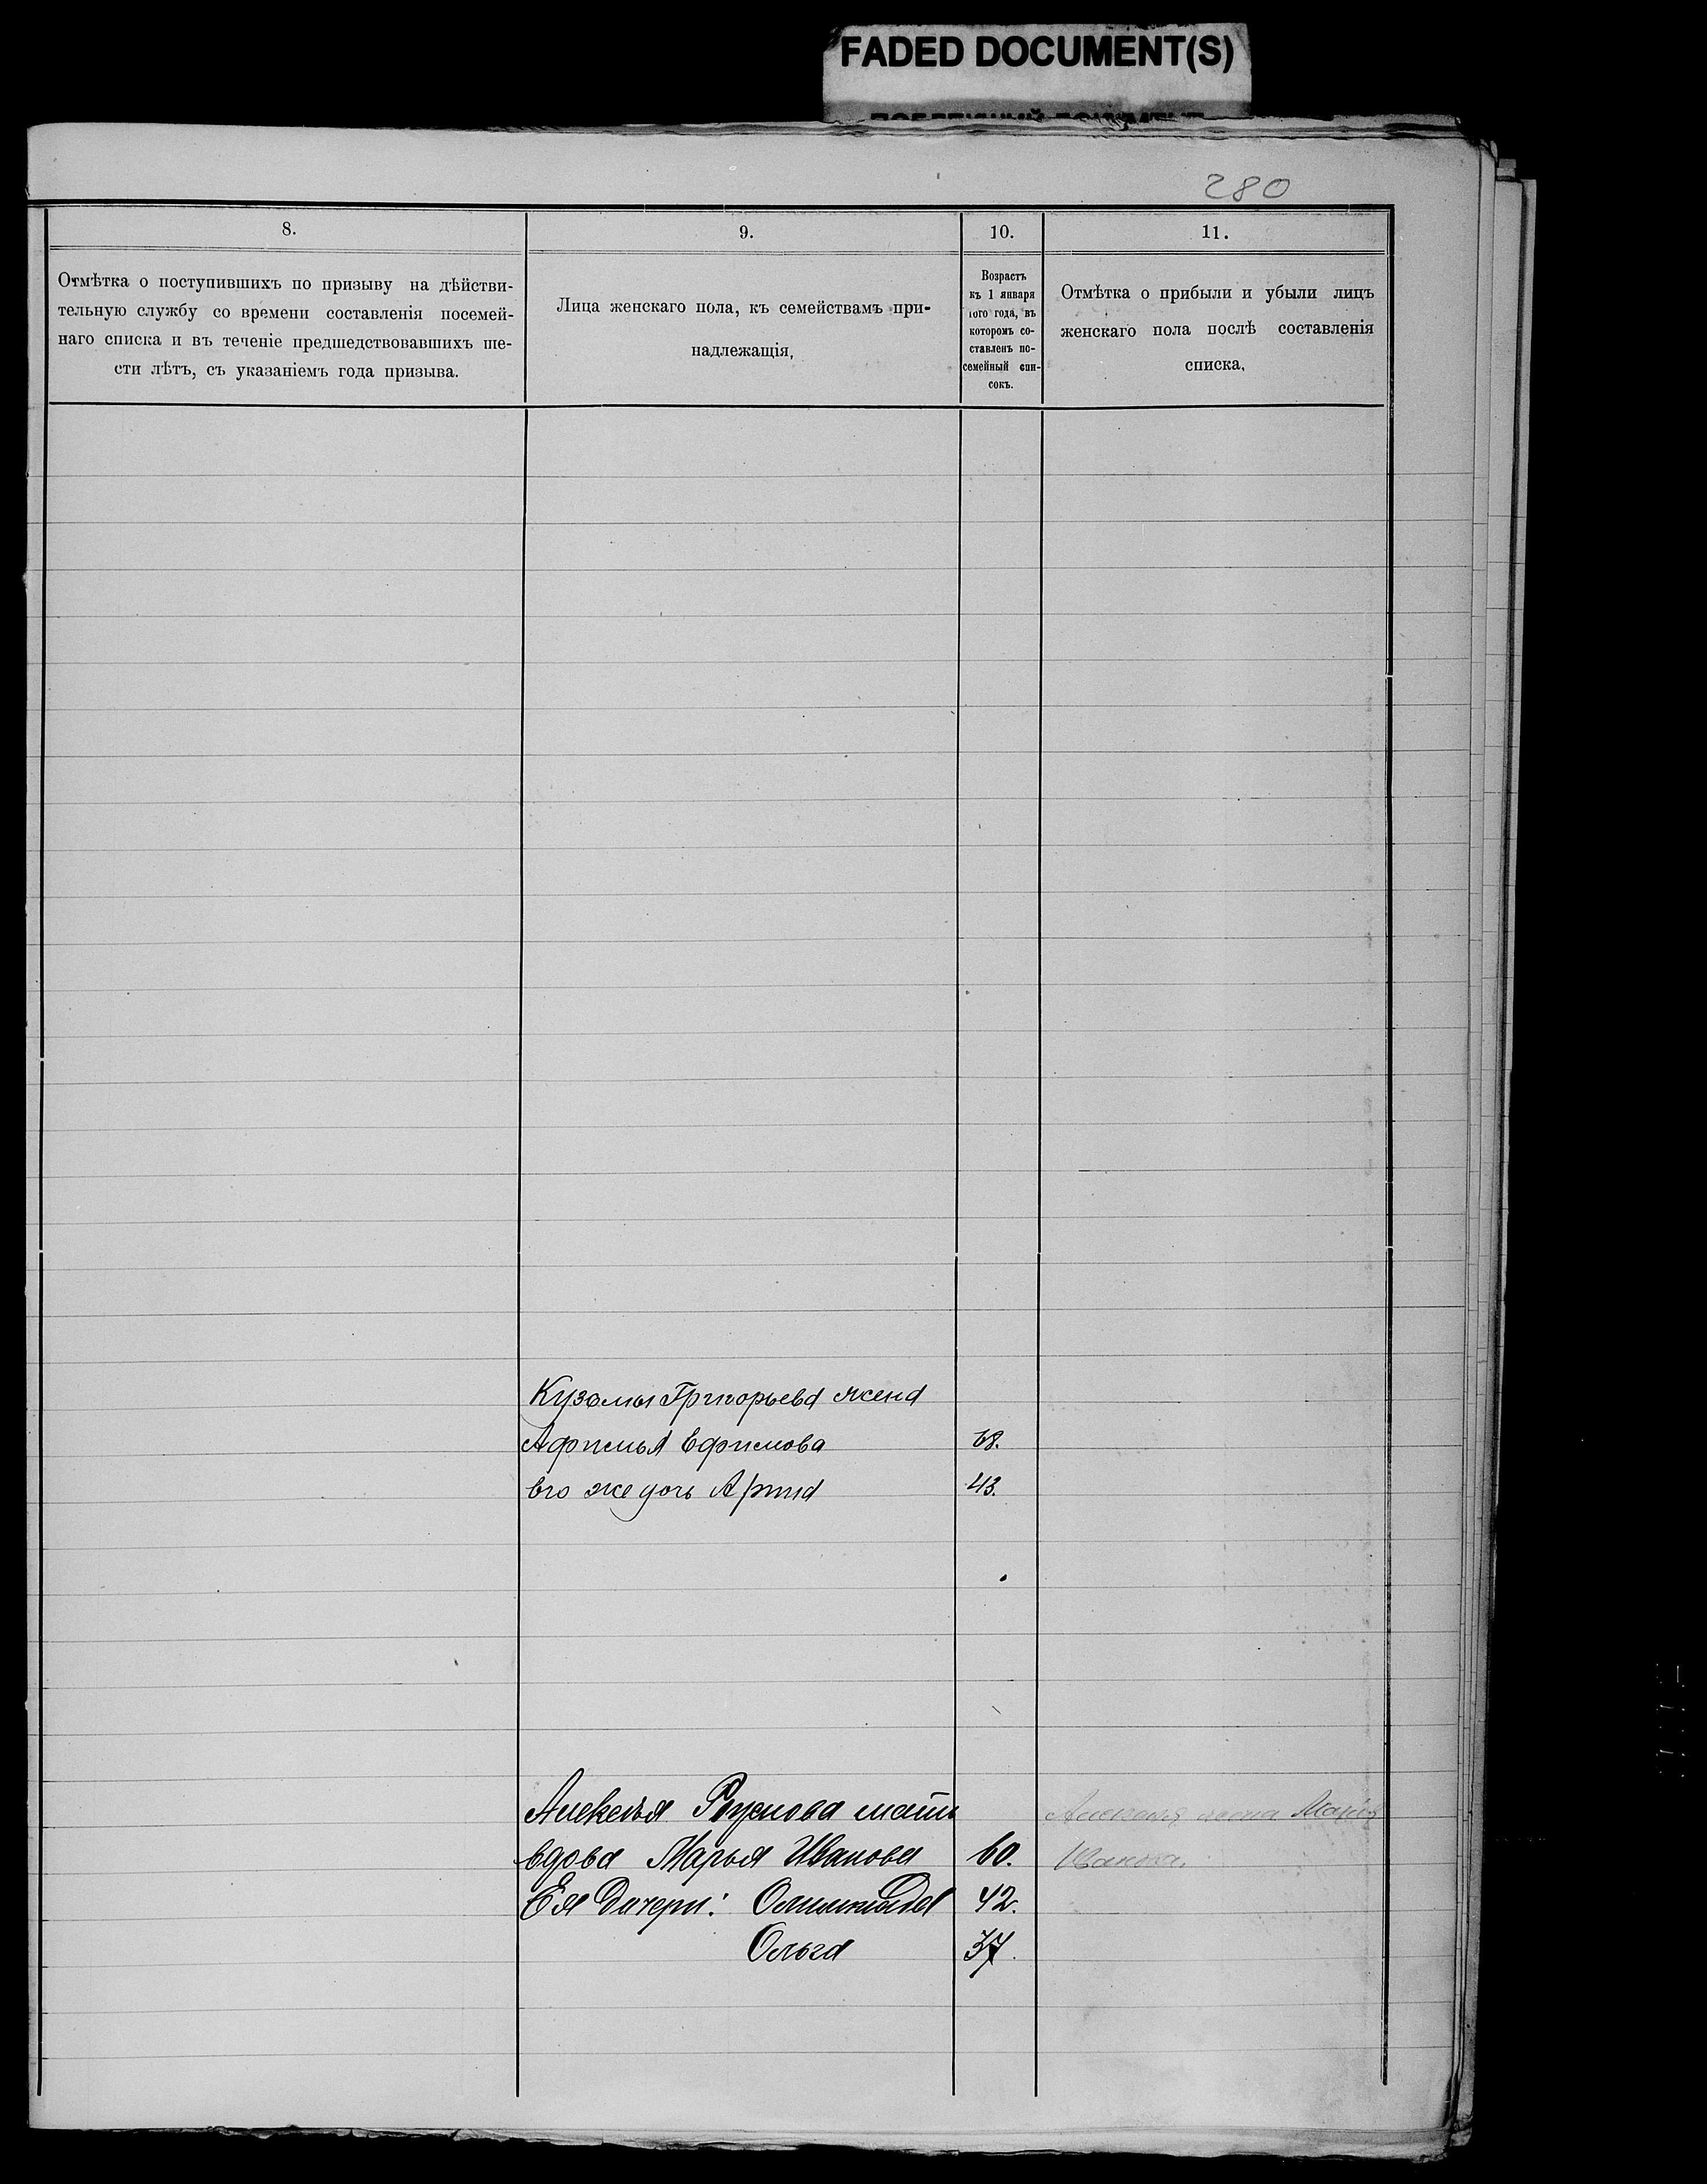 FADED DOCUMENT(S)
280
8.
9.
10.
11.
Отмѣтка о поступившихъ по призыву на дѣйстви-
тельную службу со времени составленія посемей-
наго списка и въ теченіе предшедствовавшихъ ше-
сти лѣтъ, съ указаніемъ года призыва.
Лица женскаго пола, къ семействамъ при-
надлежащія,
Возрастъ
къ 1 января
того года, въ
которомъ со-
ставленъ по-
семейный спи-
сокъ.
Отмѣтка о прибыли и убыли лицъ
женскаго пола послѣ составленія
списка,
Кузьмы Григорьева жена
Афимья Ефимова 68.
Его же дочь Арина 43.
Алексѣя мать
вдова Марья Иванова 60.
Ея Дочери: 42.
Ольга 37.
Алексѣя жена Марія
Иванова.